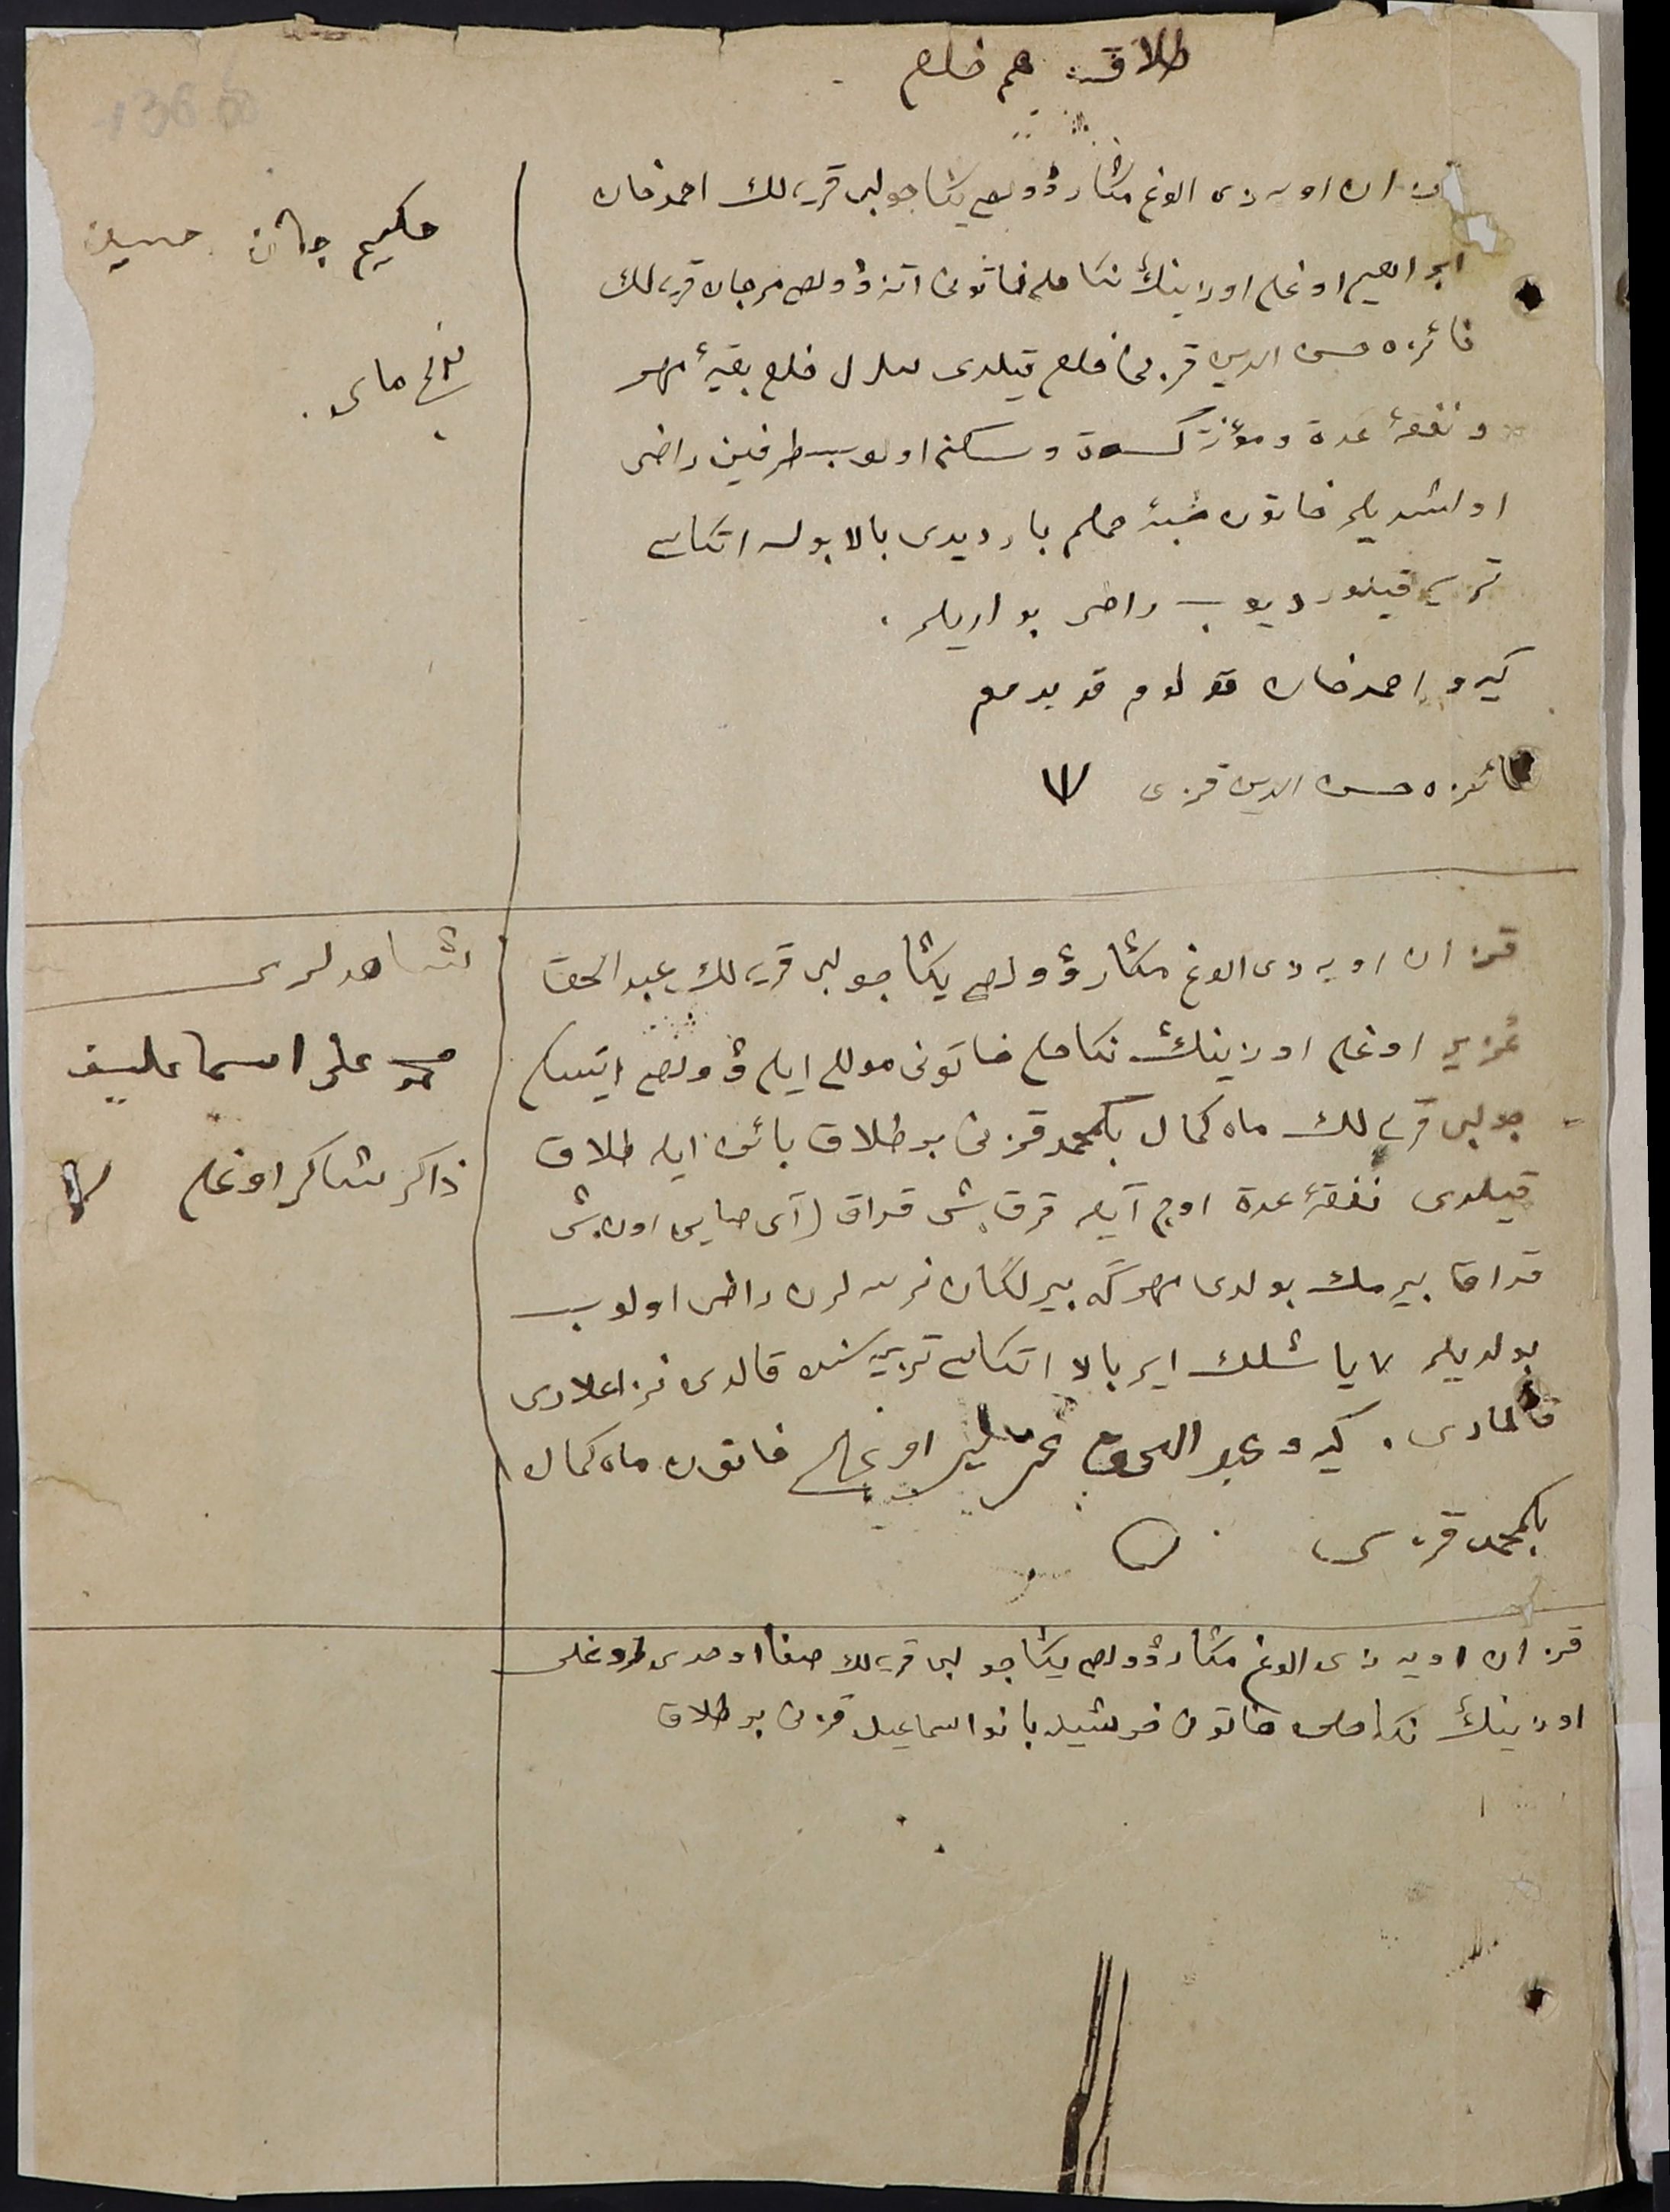 طلاق هم خلع
قزان اویه زی الوغ مشار ؤولصی یکشا جولبی قریه لك احمدخان
ابراهیم اوغلی اوزینك نکاحلی خاتونی اتنه ؤولصی مرجان قریه لك
فائزه حسن الدین قزینی خلع قیلدی بدل خلع بقیهٔ مهر
و نفقهٔ عدة و مؤنة کسوة و سکنی اولوب طرفین راضی
اولشدیلر خاتون حملم بار دیدی بالا بولسه اتکاسی
تربیه قیلور دیوب راضی بولدیلر .
کیرو احمدخان قولوم قویدم
فائزه حسن الدین قزی
حکیم جان
قزان اویه زی الوغ مشار ؤولصی یکشا جولبی قریه لك عبد الحق
عزیر اوغلی اوزینك نکاحلی خاتونی ایله ؤولصی
جولبی قریه لك ماه کمال بکمحمد قزینی بر طلاق بائن ایله طلاق
قیلدی نفقهٔ عدة اوچ آیغه قرق بش قداق (آی صایی اون بش
قداق) بیرمك بولدی مهرگه بیرلگان نرسه لرن راضی اولوب
بولدیلر ۷ یاشلك ایر بالا اتکاسی تربیه سنده قالدی نزاعلاری
قالمادی . کیرو عبد الحق اوغلی خاتون ماه کمال
بکمحمد قزی
شاهدلری
محمد علی اسماعلیف
ذاکر شاکر اوغلی
قزان اویه زی الوغ مشار ؤولصی یکشا جولبی قریه لك صفا اوغلی
اوزینك نکاحلی خاتونی خورشید بانو اسماعیل قزینی بر طلاق